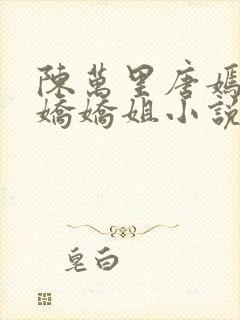 陳萬里唐嫣
嬌嬌姐小說
皂白